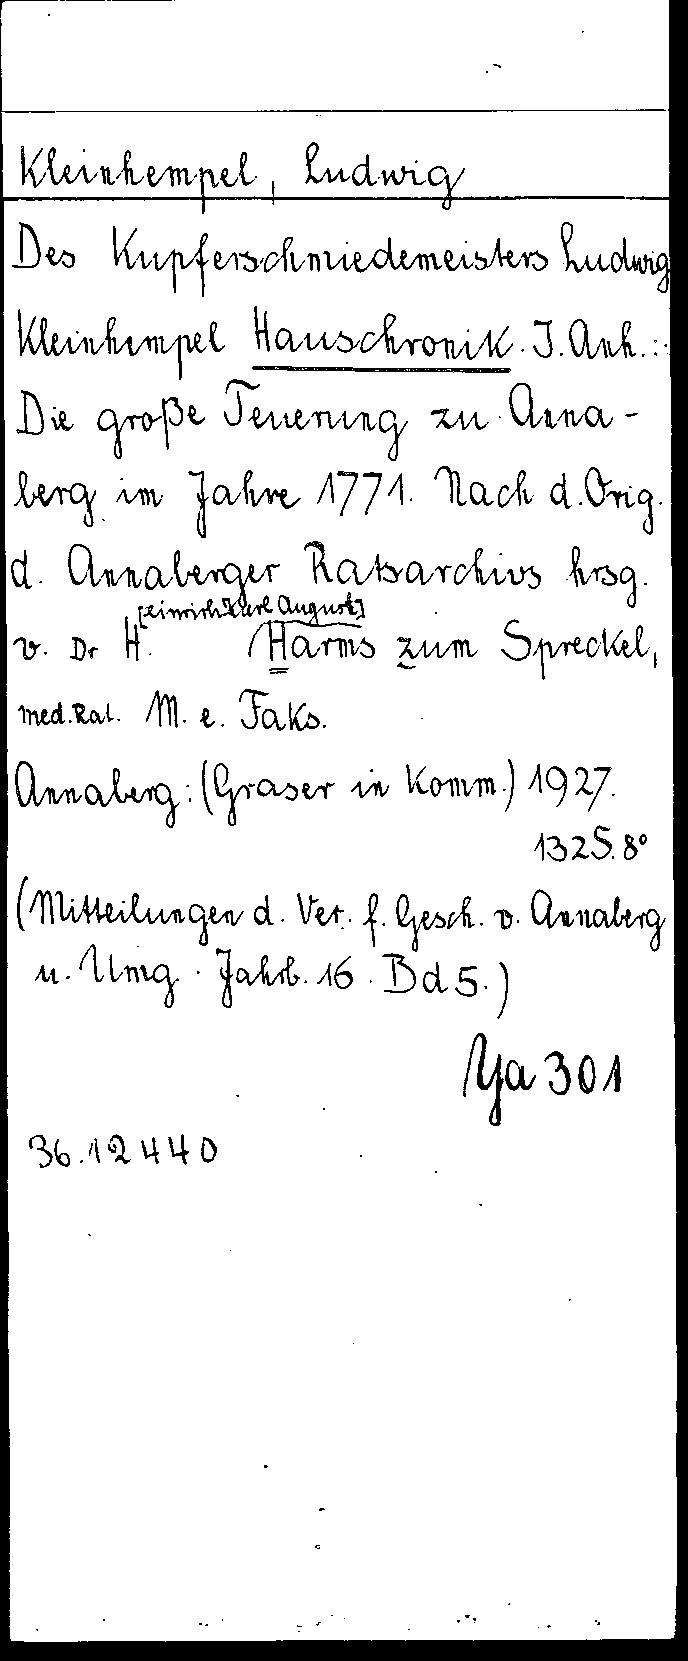 Kleinhempel, Ludwig
Des Kupferschmiedemeisters Ludwig
Kleinhempel Hauschronik. I. Anh.:
Die große Teuerung zu Anna-
berg im Jahre 1771. Nach d. Orig.
d. Annaberger Ratsarchivs hrsg.
[einrich Karl August]
v. Dr H. Harms zum Spreckel,
med. Rat. M. e. Faks.
Annaberg: (Graser in Komm.) 1927.
132 S. 8°
(Mitteilungen d. Ver. f. Gesch. v. Annaberg
u. Umg. Jahrb. 16. Bd 5.)
Ya 301
36.12440